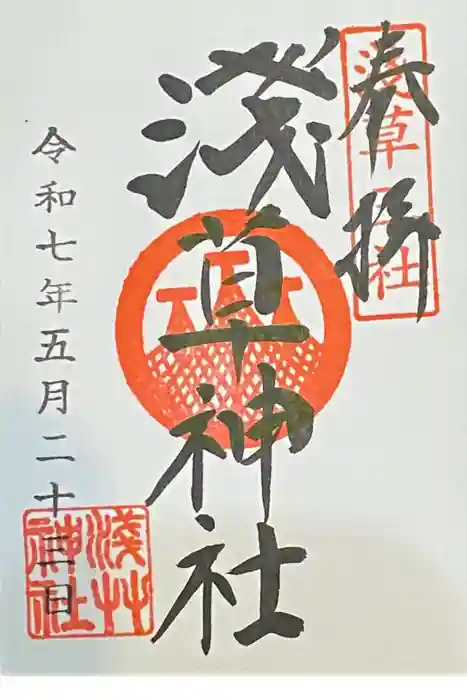 奉拝
浅草
社
淺草神社
令和七年五月二十三日
淺艸
神社